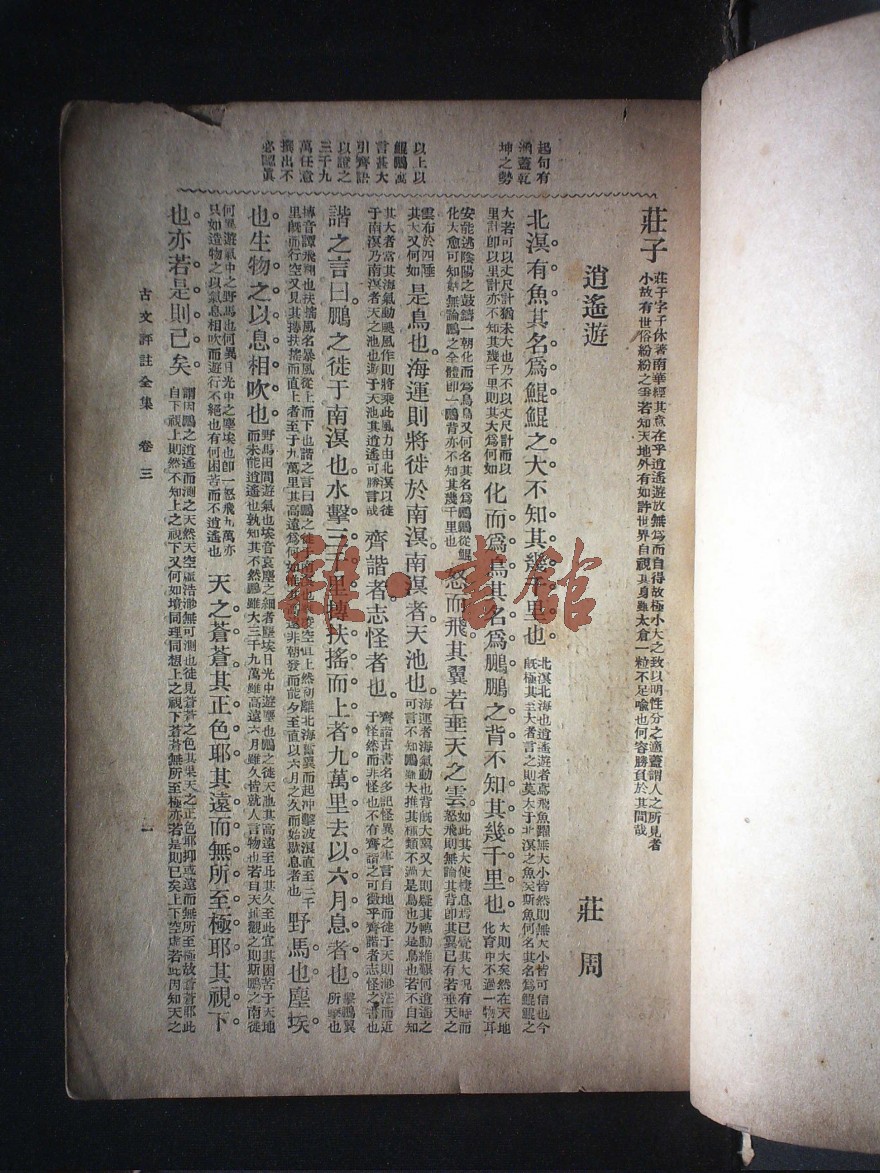 起句有
涵蓋乾
坤之勢
以上以
鯤鵬寓
言甚大
引齊諧
以證之
三千九
萬任意
出不
必認眞
莊子
莊子字子休著南華經其意在乎逍遙遊放無爲而自得故極小大之致以明性分之適蓋謂人之所見者
小故有世俗紛紛之爭若知天地外有如許世界自視其身雖太倉一粒不足喩也何容勝負於其間哉
逍遙遊
莊周
北溟有魚其名爲鯤鯤之大不知其幾千里也
北溟北海也逍遙遊者鳶飛魚躍無大小皆然則無大小皆可信也今
旣極其至大者言之則莫大于北溟之魚矣斯魚何名其名爲鯤鯤之
大若可以丈尺計猶未大也乃不以丈尺計而以
里計卽以里計亦不知其幾千里則其大爲何如
化而爲鳥其名爲鵬鵬之背不知其幾千里也
大則大矣然在天地
化育中不過一物耳
安能逃陰陽之鼓鑄一朝化而爲鳥鳥又何名其名爲鵬鵬從鯤
化大愈可知然無論鵬之全體卽一鵬背亦不知其幾千里也
怒而飛其翼若垂天之雲
如此其大使棲息焉已覺其大況有時而
怒飛則無論其背卽其翼已有若垂天之
雲布於四陲
其大又何如
是鳥也海運則將徙於南溟南溟者天池也
海運者海氣動也背旣大翼又大則疑其轉動維艱何逍遙之
可言不知鵬雖大推其種類不過是鳥也乃是鳥也若不自知
其大者當其海氣動颶風作則將乘此風力由北溟以徙
于南溟乃南溟者天之池也游于天池其逍遙可勝言哉
齊諧者志怪者也
齊諧古書名多記怪異之事言自地而徙于天則渺茫而近
于怪然而非怪也不有齊諧之可徵乎齊諧者志怪之書也
諧之言曰鵬之徙于南溟也水擊三千里摶扶搖而上者九萬里去以六月息者也
擊鵬翼
所擊也
摶音譚飛翔也扶搖風名暴風從上而下也諧之言曰鵬之徙于南
空直上然初離北海奮翼而起冲擊波浪直至三千
里旣而行空又見其摶扶搖而直上者至于九萬里其高遠爲何如
非朝發而能夕至直以六月之久而始歇息者也
野馬也塵埃
也生物之以息相吹也
野馬田間遊氣也埃音哀塵之細者塵埃日光中遊塵也鵬之徙天池其高遠至此其久至此宜其困苦于天地
而未能逍遙也孰知其不然鵬雖大三千九萬雖高遠六月雖久皆就人言物也若自天地觀之則斯鵬之南徙
何異遊氣中之野馬也何異日光中之塵埃也卽一怒飛九萬亦
只如造物之以氣息相吹而遊行不絕也有何困苦而不逍遙也
天之蒼蒼其正色耶其遠而無所至極耶其視下
也亦若是則已矣
謂因鵬之逍遙而測之天然天空虛浩渺無可測也徒見蒼蒼之色其果天之正色耶抑或遠而無所至極故蒼蒼耶此
自下視上則然不知上之視下又何如揣同理同想上之視下蒼蒼無所至極亦若是則已矣上下空虛若此因知天之
古文評註全集 卷三
一
雜·書館